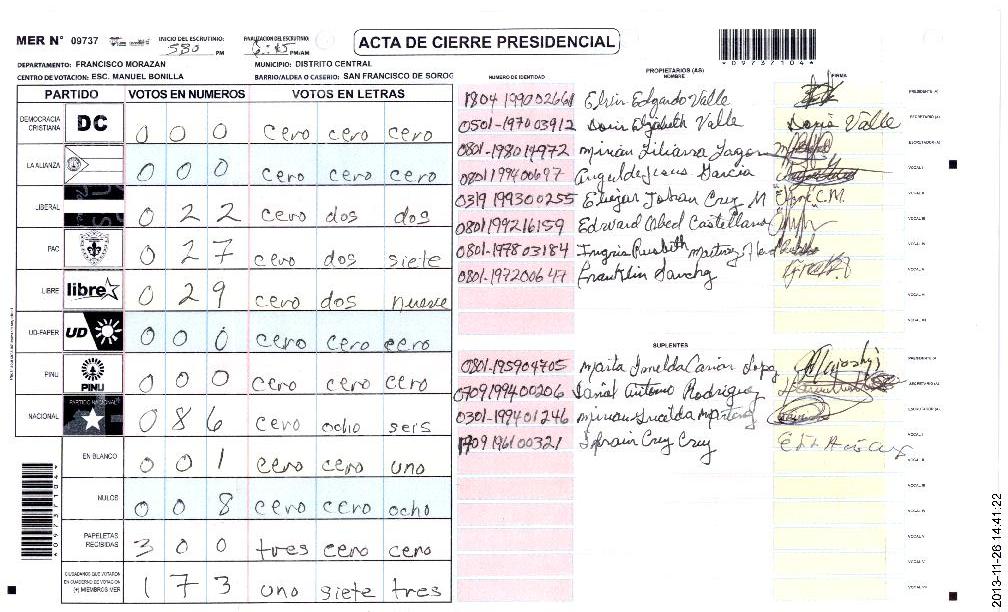 MER N° 09737 INICIO DEL ESCRUTINIO: 530 PM FINALIZACIÓN DEL ESCRUTINIO: 6:45 PM/AM
ACTA DE CIERRE PRESIDENCIAL
*09737104*
DEPARTAMENTO: FRANCISCO MORAZAN MUNICIPIO: DISTRITO CENTRAL
CENTRO DE VOTACION: ESC. MANUEL BONILLA BARRIO/ALDEA O CASERIO: SAN FRANCISCO DE SOROG
PARTIDO VOTOS EN NUMEROS VOTOS EN LETRAS
DEMOCRACIA CRISTIANA DC 0 0 0 cero cero cero
LA ALIANZA 0 0 0 cero cero cero
LIBERAL 0 2 2 cero dos dos
PAC 0 2 7 cero dos siete
LIBRE libre 0 2 9 cero dos nueve
UD-FAPER UD 0 0 0 cero cero cero
PINU PINU 0 0 0 cero cero cero
NACIONAL PARTIDO NACIONAL 0 8 6 cero ocho seis
EN BLANCO 0 0 1 cero cero uno
NULOS 0 0 8 cero cero ocho
PAPELETAS RECIBIDAS 3 0 0 tres cero cero
CIUDADANOS QUE VOTARON EN CUADERNO DE VOTACION (+) MIEMBROS MER 1 7 3 uno siete tres
*09737104*
NUMERO DE IDENTIDAD PROPIETARIOS (AS) NOMBRE FIRMA
1804 199002661 Elvin Edgardo Valle PRESIDENTE (A)
0501-1970 03912 Doris Elizabeth Valle Doris Valle SECRETARIO (A)
0801-1980 14972 Mirian Liliana ESCRUTADOR (A)
0801 199400697 Angel de Jesus Garcia VOCAL I
0319 199300255 Eliezar Johan Cruz M C.M. VOCAL II
0801 199216159 Edward Obed Castellano VOCAL III
0801-1978 03184 Martinez VOCAL IV
0801-1972006 47 Franklin Sanchez VOCAL V
VOCAL VI
VOCAL VII
SUPLENTES
0801-195904705 Marta Imelda PRESIDENTE (A)
0709 199400206 Antonio Rodriguez SECRETARIO (A)
0301-199401246 Mirian Griselda ESCRUTADOR (A)
1709 1961 00321 Efrain Cruz Cruz VOCAL I
VOCAL II
VOCAL III
VOCAL IV
VOCAL V
VOCAL VI
VOCAL VII
2013-11-26 14:41:22